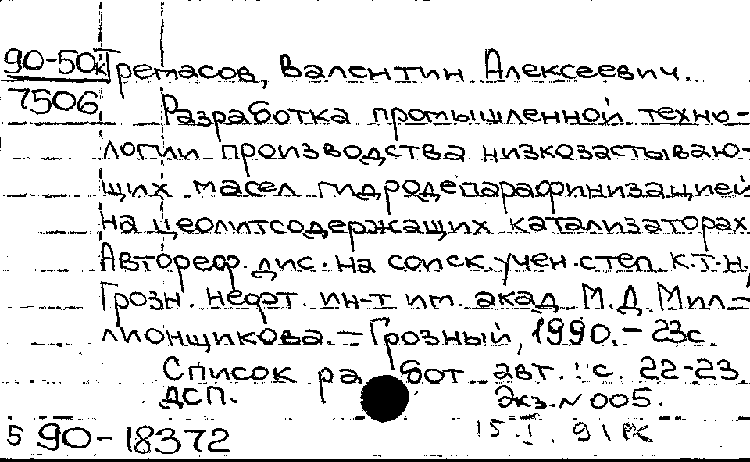 90-50к Гремасов, Валентин Алексеевич.
7506 Разработка промышленной техно-
логии производства низкозастываю-
щих масел гидродепарафинизацией
на цеолитсодержащих катализаторах
Автореф. дис. на соиск. учен. степ. к.т.н,
Грозн. нефт. ин-т им. акад М.Д. Мил-
лионщикова. – Грозный, 1990. – 23с.
Список работ авт.: с. 22-23
ДСП. Экз. N 005.
5 90-18372 15.I.91